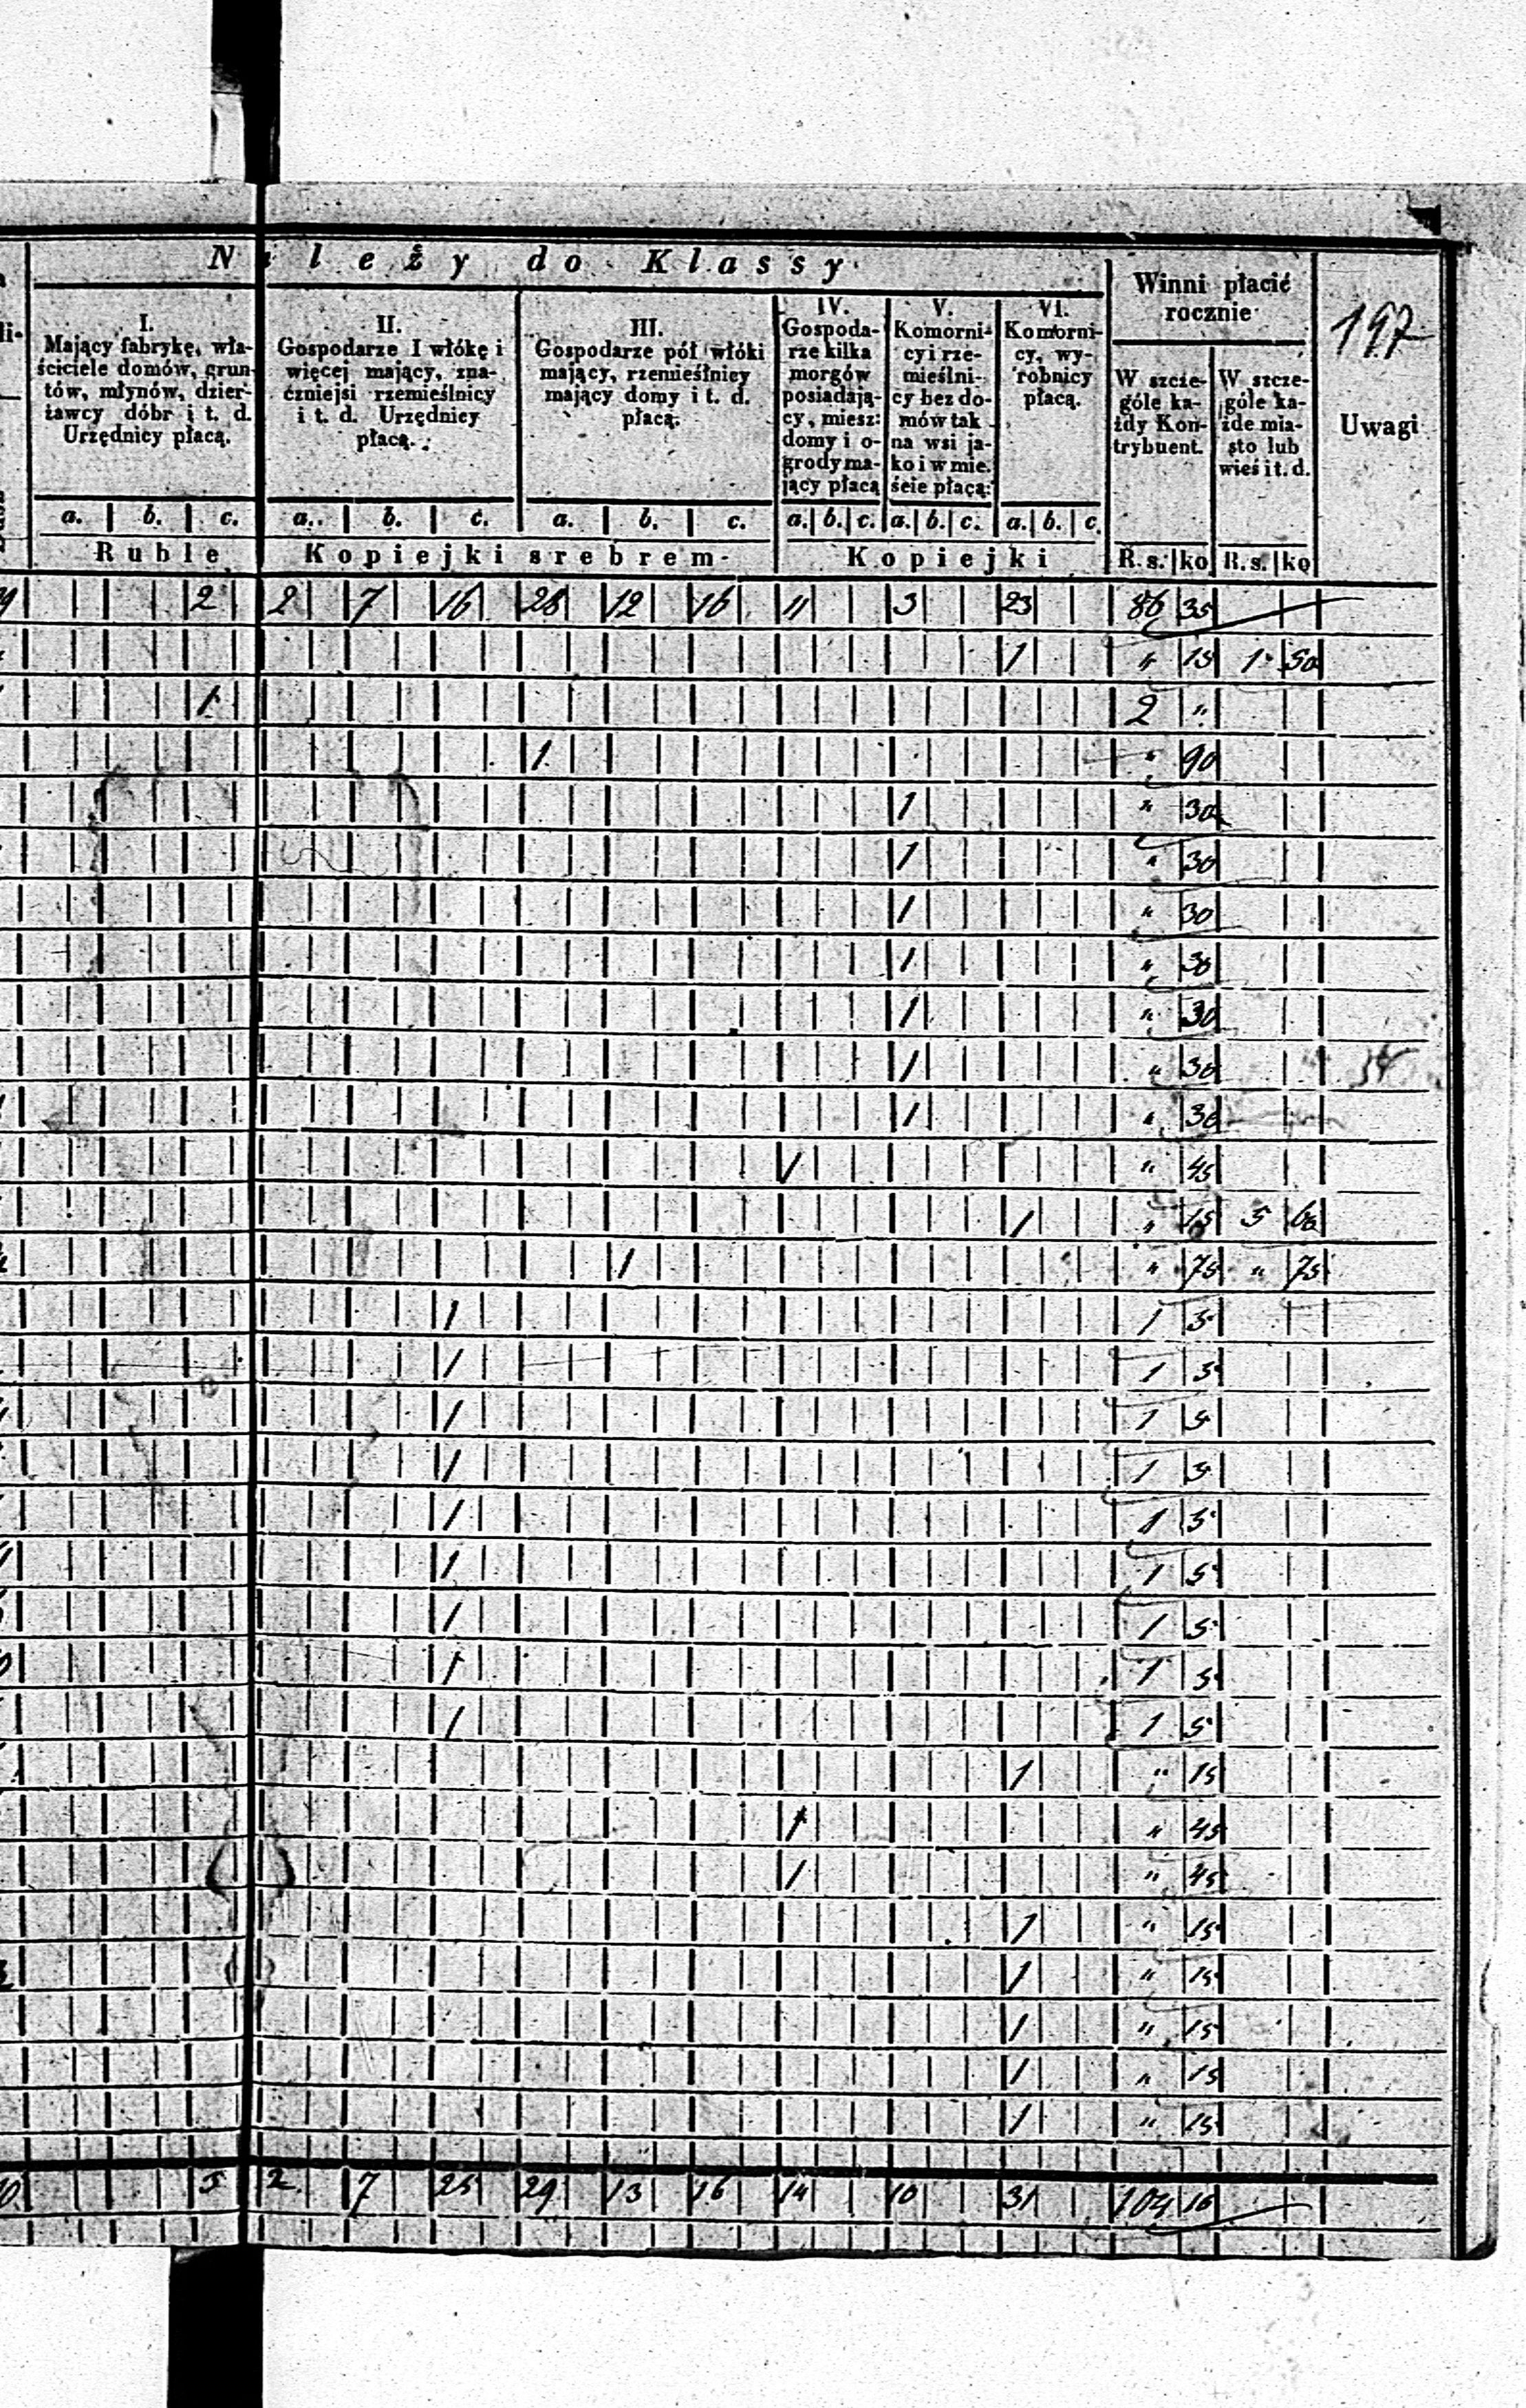 Należy do Klassy
197
I.
Mający fabrykę, wła-
ściciele domów, grun-
tów, młynów, dzier-
żawcy dóbr i t. d.
Urzędnicy płacą.
II.
Gospodarze I włókę i
więcej mający, zna-
czniejsi rzemieślnicy
i t. d. Urzędnicy
płacą.
III.
Gospodarze pół włóki
mający, rzemieślnicy
mający domy i t. d.
płacą.
IV.
Gospoda-
rze kilka
morgów
posiadają-
cy, miesz:
domy i o-
grody ma-
jący płacą
V.
Komorni-
cy i rze-
mieślni-
cy bez do-
mów tak
na wsi ja-
ko i w mie-
ście płacą:
VI.
Komorni-
cy, wy-
robnicy
płacą.
Winni płacić
rocznie
W szcze-
góle ka-
żdy Kon-
trybuent.
W szcze-
góle ka-
żde mia-
sto lub
wieś i t. d.
Uwagi
a. b. c. a. b. c. a. b. c. a. b. c. a. b. c. a. b. c.
Ruble Kopiejki srebrem Kopiejki R. s. ko R. s. ko
2 2 7 16 28 12 16 11 3 23 86 35
1 " 15 1 50
1 2 "
1 " 90
1 " 30
1 " 30
1 " 30
1 " 30
1 " 30
1 " 30
1 " 30
1 " 45
1 " 15 5 60
1 " 75 " 75
1 1 5
1 1 5
1 1 5
1 1 5
1 1 5
1 1 5
1 1 5
1 1 5
1 1 5
1 " 15
1 " 45
1 " 45
1 " 15
1 " 15
1 " 15
1 " 15
1 " 15
2 7 25 29 13 16 14 10 31 104 16